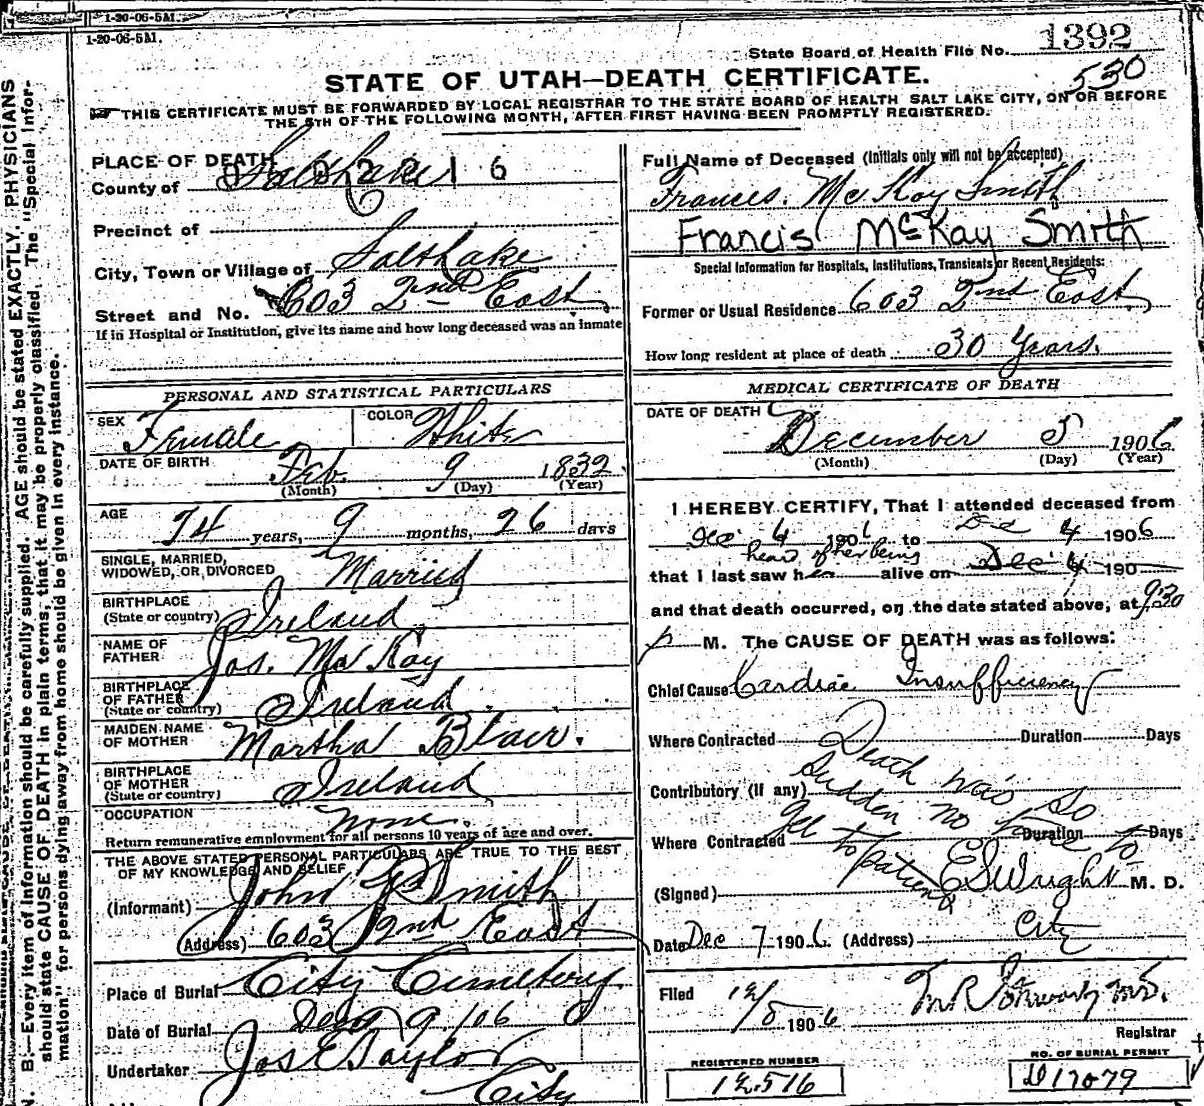 1-20-06-5M.
1-20-06-5M.
State Board of Health File No. 1392
530
STATE OF UTAH—DEATH CERTIFICATE.
THIS CERTIFICATE MUST BE FORWARDED BY LOCAL REGISTRAR TO THE STATE BOARD OF HEALTH SALT LAKE CITY, ON OR BEFORE
THE 5TH OF THE FOLLOWING MONTH, AFTER FIRST HAVING BEEN PROMPTLY REGISTERED.
PLACE OF DEATH
County of Salt Lake 1 6
Precinct of
City, Town or Village of Salt Lake
Street and No. 603 2nd East
If in Hospital or Institution, give its name and how long deceased was an inmate
Full Name of Deceased (Initials only will not be accepted)
Frances. McKay Smith
Francis McKay Smith
Special Information for Hospitals, Institutions, Transients or Recent Residents:
Former or Usual Residence 603 2nd East
How long resident at place of death 30 Years.
PERSONAL AND STATISTICAL PARTICULARS
SEX Female COLOR White
DATE OF BIRTH Feb. 9 1832.
(Month) (Day) (Year)
AGE 74 years, 9 months, 26 days
SINGLE, MARRIED,
WIDOWED, OR DIVORCED Married
BIRTHPLACE
(State or country) Ireland
NAME OF
FATHER Jos. McKay
BIRTHPLACE
OF FATHER
(State or country) Ireland
MAIDEN NAME
OF MOTHER Martha Blair.
BIRTHPLACE
OF MOTHER
(State or country) Ireland
OCCUPATION None.
Return remunerative employment for all persons 10 years of age and over.
THE ABOVE STATED PERSONAL PARTICULARS ARE TRUE TO THE BEST
OF MY KNOWLEDGE AND BELIEF
(Informant) John P Smith
(Address) 603 2nd East
Place of Burial City Cemetery
Date of Burial Dec 9 /06
Undertaker Jos E Taylor
City
MEDICAL CERTIFICATE OF DEATH
DATE OF DEATH
December 5 1906
(Month) (Day) (Year)
I HEREBY CERTIFY, That I attended deceased from
Dec 4 1906 to Dec 4 1906
heard of her being
that I last saw her alive on Dec 4 190
and that death occurred, on the date stated above, at 9:30
p M. The CAUSE OF DEATH was as follows:
Chief Cause Cardiac Insufficiency
Where Contracted Duration Days
Death was so
Contributory (if any)
sudden no time to
Where Contracted Duration Days
get to patient
(Signed) E S Wright M. D.
Date Dec 7 1906 (Address) City
Filed 12/8 1906
Registrar
REGISTERED NUMBER
12516
NO. OF BURIAL PERMIT
D17079
N. B.—Every item of information should be carefully supplied. AGE should be stated EXACTLY. PHYSICIANS
should state CAUSE OF DEATH in plain terms, that it may be properly classified. The "Special Infor-
mation" for persons dying away from home should be given in every instance.